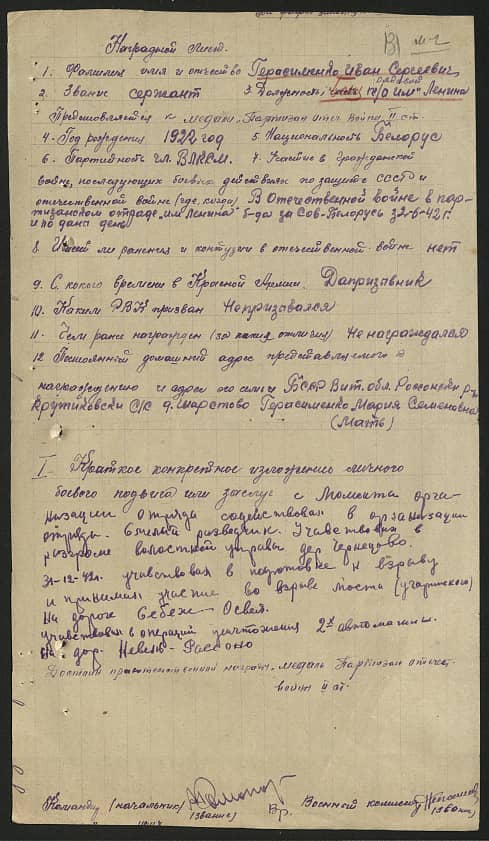 В) М-2
Наградной Лист.
1. Фамилия имя и отчество Герасименко Иван Сергеевич
рядовой
2. Звание сержант 3. Должность п/о им" Ленина
Предоставляется к медали "Партизан отеч. Войны" II ст.
4. Год рождения 1922 год 5. Национальность Белорус
6. Партийность чл. ВЛКСМ. 7. Участие в Гражданской
войне, последующих боевых действиях по защите СССР и
отечественной войне (где, когда) В Отечественной войне в пар-
тизанском отряде "им Ленина" б-да за Сов-Белорусь з 2-6-42 г.
и по дана день
8. Имеет ли ранения и контузии в отечественной войне нет
9. С какого времени в Красной Армии Даприз авник
10. Каким РВК призван Непризывался
11. Чем ранее награжден (за какия отличия) Не награждался
12 Постоянный домашний адрес представляемого к
награждению и адрес его семьи БССР Вит. обл. Россонски р-н
Крутиковски С/С д. Шарстово Герасименко Мария Семеновна
(Мать)
I. Краткое конкретное изложению личного
боевого подвига или заслуг с Момента орга-
низации отряда содействовал в организации
отряда. Смелый разведчик. Учавствовал в
разгроме волостной управы дер Чернецово.
31-12-42г. учавствовал в подготовке к взрыву
и принимал участие во взрыве моста
На дороге Себеж - Освея.
учавствовал в операций уничтожения 2х автомашин.
на дор. Невель - Рассоно
Достоин правительственной награды, медаль Партизан отечест.
войны II ст.
Командир (начальник) Вр. Военный комиссар
(звание) (звание)